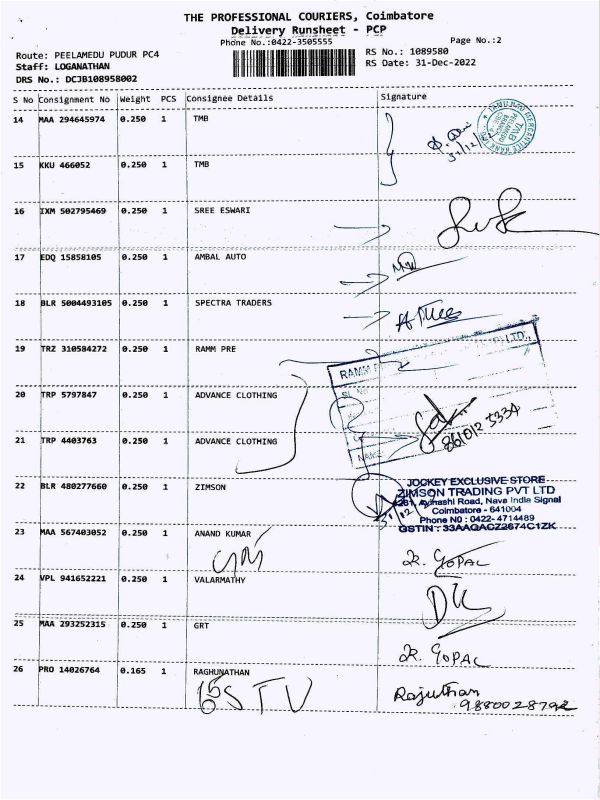 THE PROFESSIONAL COURIERS, Coimbatore
Delivery Runsheet - PCP
Phone No.:0422-3505555 Page No.:2
Route: PEELAMEDU PUDUR PC4 RS No.: 1089580
Staff: LOGANATHAN RS Date: 31-Dec-2022
DRS No.: DCJB108958002
S No Consignment No Weight PCS Consignee Details Signature
14 MAA 294645974 0.250 1 TMB
31/12/22
TAMILNAD MERCANTILE BANK
TMB
15 KKU 466052 0.250 1 TMB
16 IXM 502795469 0.250 1 SREE ESWARI
17 EDQ 15858105 0.250 1 AMBAL AUTO
18 BLR 5004493105 0.250 1 SPECTRA TRADERS
19 TRZ 310584272 0.250 1 RAMM PRE
RAMM LTD.
20 TRP 5797847 0.250 1 ADVANCE CLOTHING
21 TRP 4403763 0.250 1 ADVANCE CLOTHING
NAME
22 BLR 480277660 0.250 1 ZIMSON
JOCKEY EXCLUSIVE STORE
ZIMSON TRADING PVT LTD
Avinashi Road, Nava India Signal
Coimbatore - 641004
Phone N0 : 0422- 4714489
GSTIN : 33AAQACZ2674C1ZK
23 MAA 567403052 0.250 1 ANAND KUMAR
R. GOPAL
24 VPL 941652221 0.250 1 VALARMATHY
25 MAA 293252315 0.250 1 GRT
R. GOPAL
26 PRO 14026764 0.165 1 RAGHUNATHAN
Rajuthan
9880028792